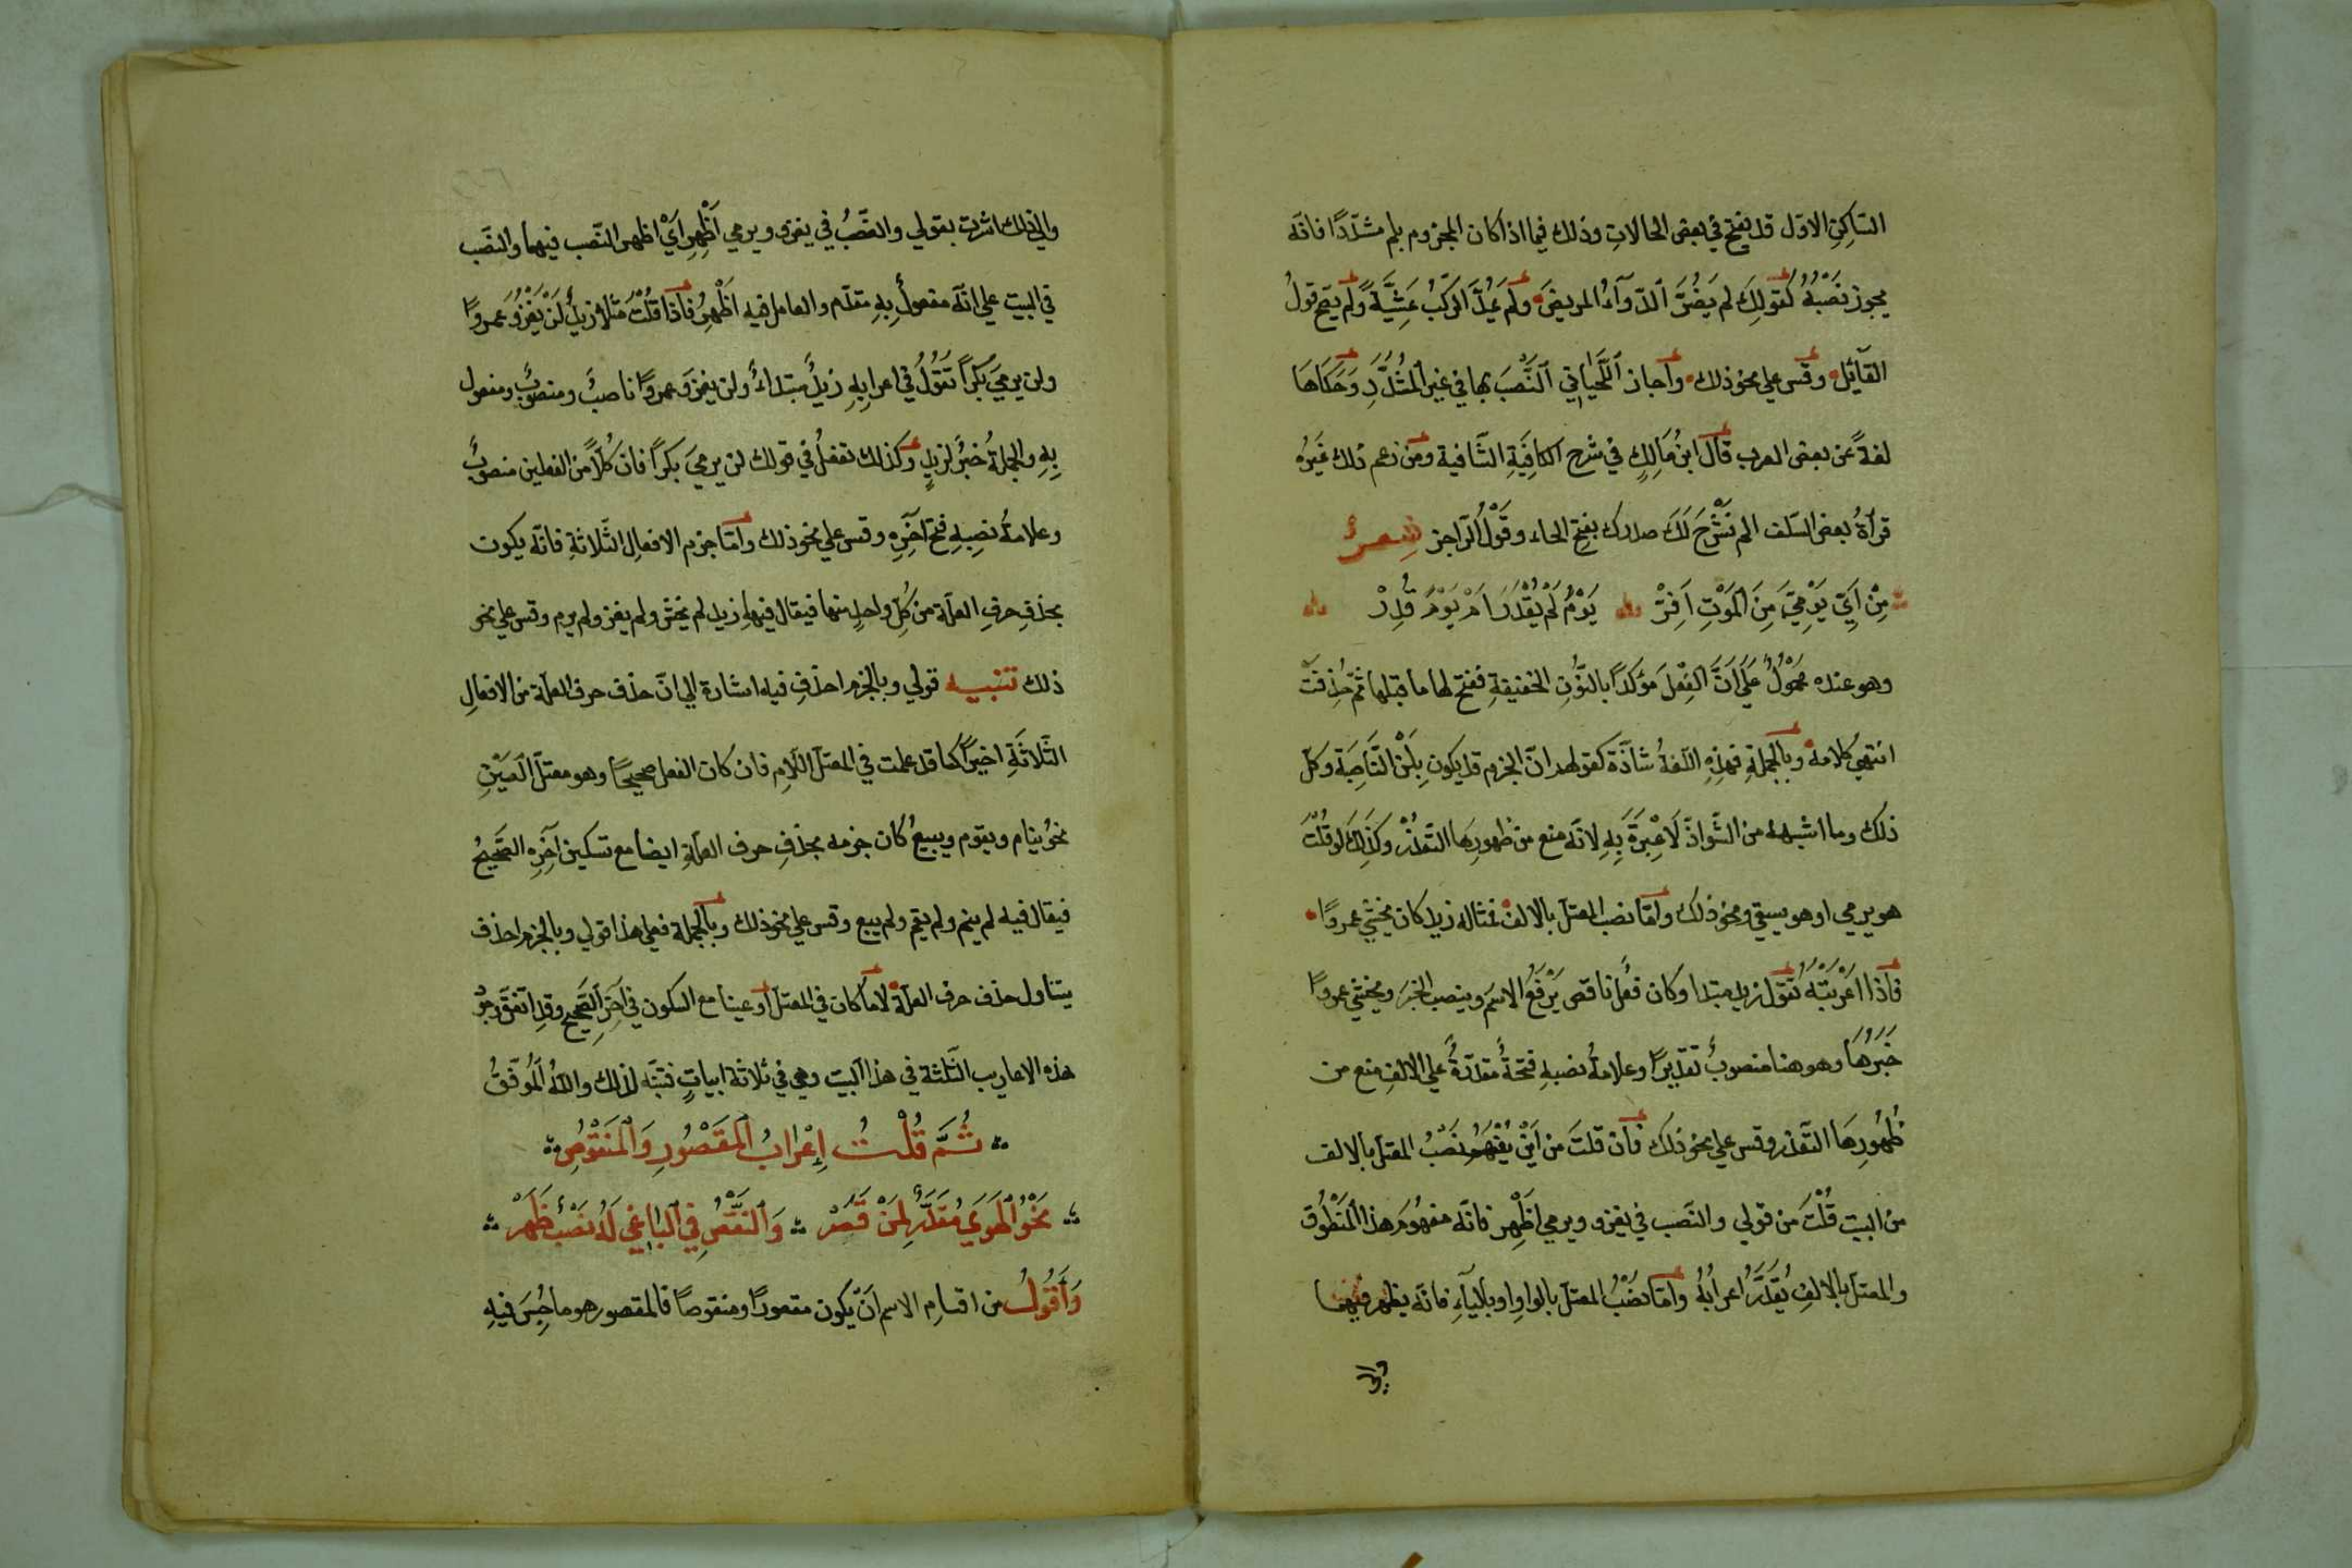 الساكن الاوّل قد يفتح في بعض الحالات وذلك فيما اذا كان المجزوم بلم مشدّدًا فانّه
يجوز نَصْبُهُ كقولِكَ لم يَضُرَّ الدّوآءُ المريضَ ولم يَمُدَّ الركبُ عَشِيَّةً ولم يَبِحْ قولُ
القآئل وقس علي نحو ذلك واجاز اللّحياني النَّصْبَ بها في غير المُشدَّدِ وَحَكَاهَا
لغةً عن بعض العرب قال ابنُ مَالِكٍ في شرح الكافِيَةِ الشّافية ومن زعم ذلك غيرُه
قرآة بعض السّلف الم نَشْرَحَ لَكَ صدرك بفتح الحاء وقَوْلُ الرّاجز شعرٌ
مِنْ اَيِّ يَوْمِيَّ مِنَ المَوْتِ اَفِرّْ يَوْمُ لَمْ يُقْدَرَ اَمْ يَوْمَ قُدِرْ
وهو عنده محمولٌ عَلَي اَنَّ الفِعْلَ مؤكدًا بالنّونِ الخفيفةِ ففتح لها ما قبلها ثمّ حُذِفَتْ
انتهي كلامه وبالجملةِ فهذِهِ اللّغةُ شاذّة كقولهم انّ الجزم قد يكون بِلَنْ النّاصِبَة وكلّ
ذلك وما اشبهه من الشّواذّ لَا عِبْرَةَ بِهِ لانّه منع من ظهورِهَا التّعذّر وكَذَلِكَ لو قُلْتَ
هو يرمي او هو يسقي ونحو ذلك وامّا نصب المعتلّ بالالف فمثاله زيد كان يخشي عمروًا
فاذا اعربْتَهُ تقول زيد مبتدا وكان فعلٌ ناقص يَرْفَعُ الاسْمَ وينصب الخبَرَ ويخشي عمروًا
خَبَرُهَا وهو هنا منصوبٌ تقديرًا وعلامةُ نصبه فتحةٌ مقدّرةٌ علي الالف منع من
ظُهُورِهَا التّعذّر وقس علي نحو ذلك فان قلتَ من اَيْنَ يُفْهَمُ نَصْبُ المعتلّ بالالف
من البيت قُلْتَ من قولي والنّصب في يغزو ويرمي اَظْهِر فانّه مفهُومَ هذا المَنْطُوق
والمعتلّ بالالفِ يُقَدَّرُ اعرابُهُ وامّا نصْبُ المعتلّ بالواوِ او باليآءِ فانّه يظهر فيهما
والي
والي ذلك اشرت بقولي والنّصْبُ في يغزو ويرمي اَظْهِرِ اَيْ اظهر النّصب فيهما والنصب
في البيت علي انّه مفعولٌ بِهِ مقدّم والعامل فيه اَظْهِرْ فاذا قُلْتَ مثلًا زيدٌ لَنْ يَغْزُوَ عمروًا
ولن يرميَ بكْرًا تَقُولُ في اعرابِهِ زيدٌ مبتداءٌ ولن يغزوَ عمروًا ناصبٌ ومنصوبٌ ومفعول
بِهِ والجملةُ خبرٌ لزيدٍ وكذلك تفعلُ في قولك لن يرميَ بكرًا فان كُلًّا من الفعلين منصوبٌ
وعلامةُ نصبِهِ فتح آخرِهِ وقس علي نحو ذلك وامّا جزم الافعال الثّلاثةِ فانّه يكون
بحذفِ حرفِ العلّة من كلّ واحدٍ منها فيقال فيها زيد لم يخش ولم يغز ولم يرم وقس علي نحو
ذلك تنبيه قولي وبالجزم احذف فيه اشارة الي انّ حذف حرف العلّة من الافعالِ
الثّلاثَةِ اخيرًا كما قد علمت في المعتلّ اللّامِ فان كان الفعل صحيحًا وهو معتلّ العَيْنِ
نحوُ ينام ويقوم ويبيعُ كان جزمه بحذفِ حرف العلّةِ ايضا مع تسكين آخرِهِ الصّحيحُ
فيقال فيه لم ينم ولم يقم ولم يبع وقس علي نحو ذلك وبالجملة فعلي هذا قولي وبالجزم احذف
يتناول حذف حرف العلّة لاما كان في المعتلّ او عينا مع السكون في آخرِ الصّحيحِ وقد اتّفق وجوُ
هذه الاعاريب الثّلثة في هذا البيت وهي في ثلاثة ابياتٍ فتنبّه لذلك واللهُ المُوَفّقُ
ثُمَّ قُلْتُ اِعْرَابُ المَقْصُورِ وَالمَنْقُوصِ
نَحْوُ الهَوَي مُقَدَّرٌ لِمَنْ قَصَرْ وَالنَّقْصُ فِي البَاغِي لَهُ نَصْبٌ ظَهَرْ
وَاَقُولُ من اقسامِ الاسم اَنْ يكون مقصورًا ومنقوصًا فالمقصور هو ما حُبِسَ فيهِ